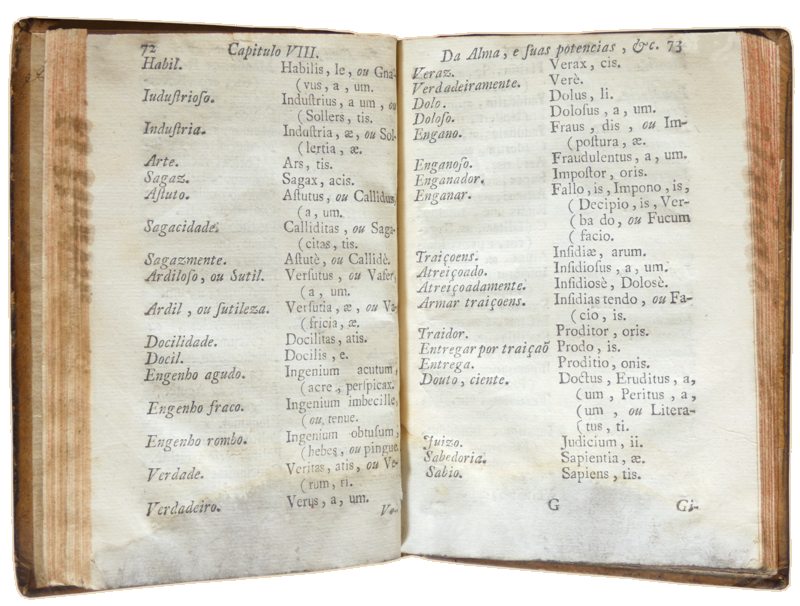 72 Capitulo VIII.
Habil. Habilis, le, ou Gna-
(vus, a, um.
Iuduſtrioſo. Induſtrius, a um, ou
(Sollers, tis.
Induſtria. Induſtria, æ, ou Sol-
(lertia, æ.
Arte. Ars, tis.
Sagaz. Sagax, acis.
Aſtuto. Aſtutus, ou Callidus,
(a, um.
Sagacidade. Calliditas, ou Saga-
(citas, tis.
Sagazmente. Aſtutè, ou Callidè.
Ardiloſo, ou Sutil. Verſutus, ou Vafer,
(a, um.
Ardil, ou ſutileza. Verſutia, æ, ou Va-
(fricia, æ.
Docilidade. Docilitas, atis.
Docil. Docilis, e.
Engenho agudo. Ingenium acutum,
(acre, perſpicax.
Engenho fraco. Ingenium imbecille,
(ou, tenue.
Engenho rombo. Ingenium obtuſum,
(hebes, ou pingue
Verdade. Veritas, atis, ou Ve-
(rum, ri.
Verdadeiro. Verus, a, um.
Ve-
Da Alma, e ſuas potencias, &c. 73
Veraz. Verax, cis.
Verdadeiramente. Verè.
Dolo. Dolus, li.
Doloſo. Doloſus, a, um.
Engano. Fraus, dis, ou Im-
(poſtura, æ.
Enganoſo. Fraudulentus, a, um.
Enganador. Impoſtor, oris.
Enganar. Fallo, is, Impono, is,
(Decipio, is, Ver-
(ba do, ou Fucum
(facio.
Traiçoens. Inſidiæ, arum.
Atreiçoado. Inſidioſus, a, um.
Atreiçoadamente. Inſidiosè, Dolosè.
Armar traiçoens. Inſidias tendo, ou Fa-
(cio, is.
Traidor. Proditor, oris.
Entregar por traiçaõ Prodo, is.
Entrega. Proditio, onis.
Douto, ciente. Doctus, Eruditus, a,
(um, Peritus, a,
(um, ou Litera-
(tus, ti.
Juizo. Judicium, ii.
Sabedoria. Sapientia, æ.
Sabio. Sapiens, tis.
G Gi-